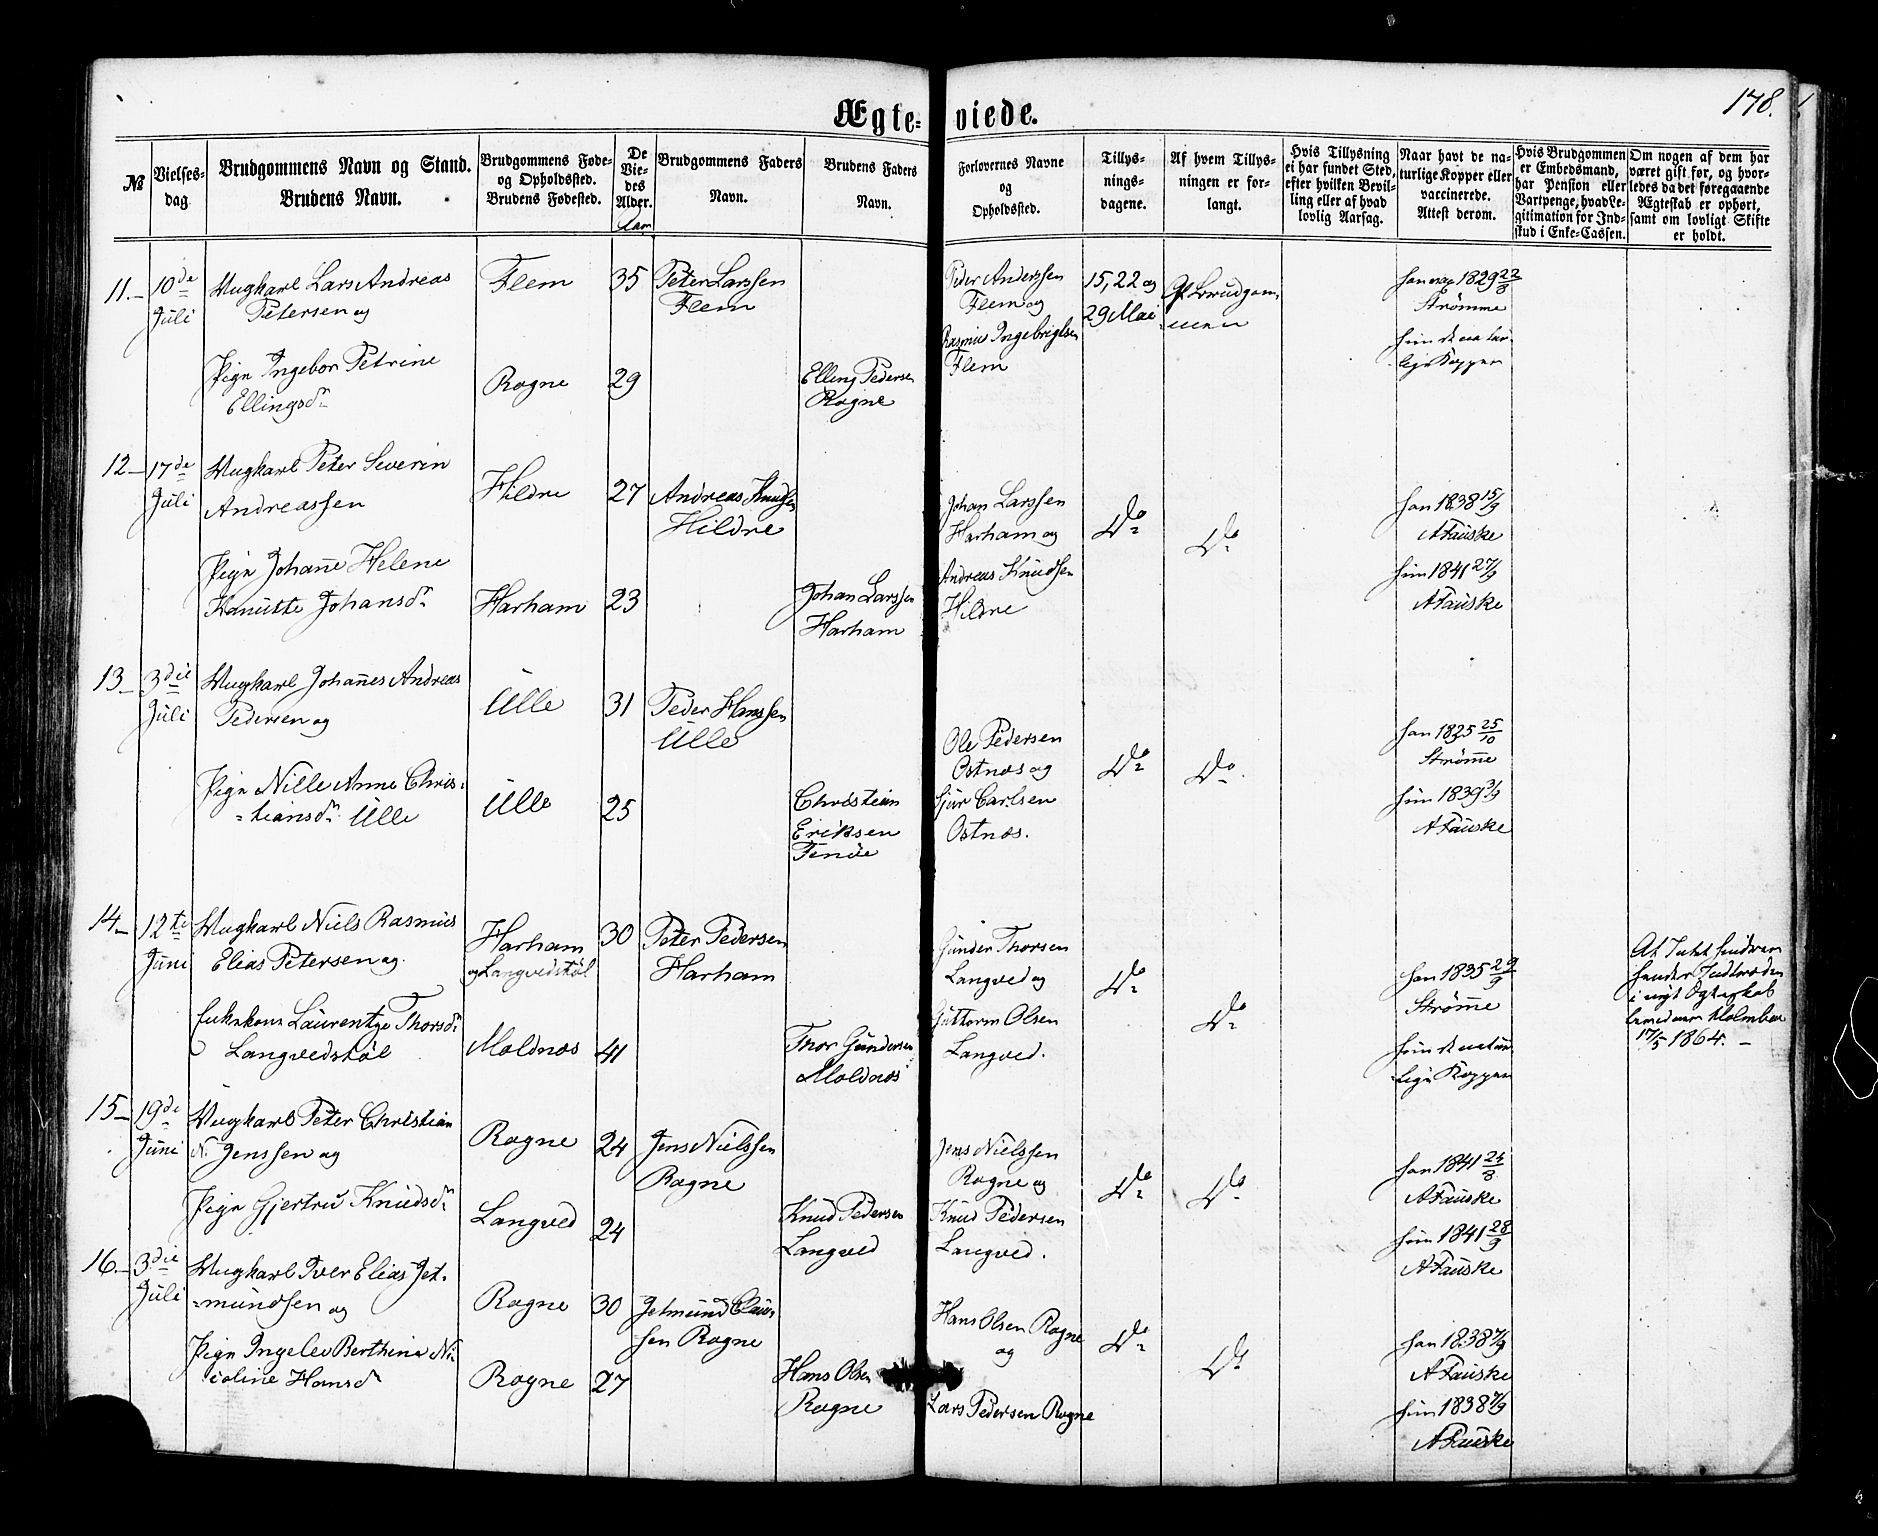 Ægte- viede.
178.
№
Vielses-
dag.
Brudgommens Navn og Stand.
Brudens Navn.
Brudgommens Føde-
og Opholdssted.
Brudens Fødested.
De
Vie-
des
Alder.
Aar
Brudgommens Faders
Navn.
Brudens Faders
Navn.
Forlovernes Navne
og
Opholdssted.
Tillys-
nings-
dagene.
Af hvem Tillys-
ningen er for-
langt.
Hvis Tillysning
ei har fundet Sted,
efter hvilken Bevil-
ling eller af hvad
lovlig Aarsag.
Naar havt de na-
turlige Kopper eller
vaccinerede.
Attest derom.
Hvis Brudgommen
er Embedsmand,
har Pension eller
Vartpenge, hvad Le-
gitimation for Ind-
skud i Enke-Cassen.
Om nogen af dem har
været gift før, og hvor-
ledes da det foregaaende
Ægteskab er ophørt,
samt om lovligt Skifte
er holdt.
11.
10de
Juli
Ungkarl Lars Andreas
Petersen og
Flem
35
Peter Larssen
Flem
Pige Ingebor Petrine
Ellingsdr
Rogne
29
Elling Pedersen
Rogne
Peder Anderssen
Flem og
Rasmus Ingebrigtsen
Flem
15, 22 og
29 Mai
Af Brudgom-
men
han 1829 22/8
Strømme
hun de natur-
lige Kopper
12
17de
Juli
Ungkarl Peter Severin
Andreassen
Hildre
27
Andreas Knudsen
Hildre
Pige Johanne Helene
Knutte Johansdr
Harham
23
Johan Larssen
Harham
Johan Larssen
Harham og
Andreas Knudsen
Hildre
Do
Do
han 1838 15/9
A Fauske
hun 1841 27/9
A Fauske
13
3die
Juli
Ungkarl Johannes Andreas
Pedersen og
Ulle
31
Peder Hanssen
Ulle
Pige Nille Anne Chris-
tiansdr Ulle
Ulle
25
Christian
Eriksen
Finøe
Ole Pedersen
Ostnæs og
Sjur Carlsen
Ostnæs.
Do
Do
han 1835 25/10
Strømme
hun 1839 3/9
A Fauske
14
12te
Juni
Ungkarl Niels Rasmus
Elias Petersen og
Harham
og Langvedstøl
30
Peter Pedersen
Harham
Enkekone Laurentze Thorsdr
Langvedstøl
Moldnæs
41
Thor Gundersen
Moldnæs
Gunder Thorsen
Langved og
Guttorm Olsen
Langved.
Do
Do
han 1835 29/9
Strømme
hun de natur-
lige Kopper
At Intet hindrer
hendes Indtræden
i nyt Ægteskab
17/5 1864.
15
19de
Juni
Ungkarl Peter Christian
N. Jenssen og
Rogne
24
Jens Nielssen
Rogne
Pige Gjertru Knudsdr
Langved
24
Knud Pedersen
Langved
Jens Nielssen
Rogne og
Knud Pedersen
Langved.
Do
Do
han 1841 24/8
A Fauske
hun 1841 28/9
A Fauske
16.
3die
Juli
Ungkarl Iver Elias Jet-
mundsen og
Rogne
30
Jetmund Claus-
sen Rogne
Pige Ingelev Berthine Ni-
coline Hansdr
Rogne
27
Hans Olsen
Rogne
Hans Olsen Rogne
og
Lars Pedersen Rogne
Do
Do
han 1838 7/9
A Fauske
hun 1838 7/9
A Fauske